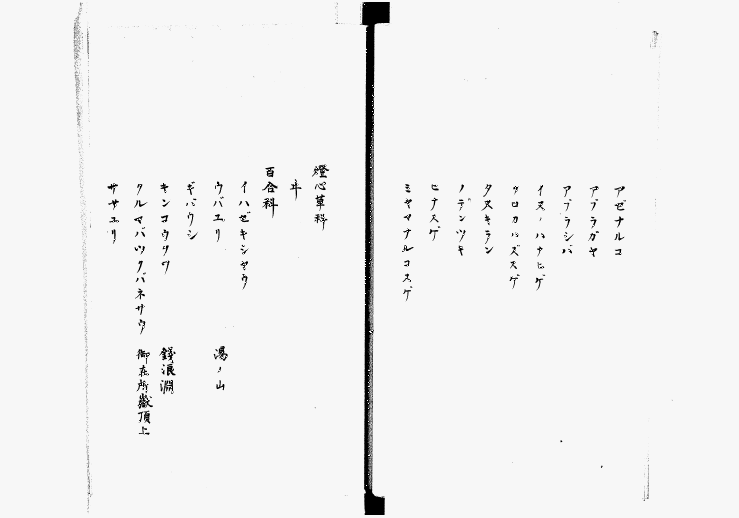 アゼナルコ
アブラガヤ
アブラシバ
イヌノハナヒゲ
クロカハズスゲ
タヌキラン
ノデンツキ
ヒナスゲ
ミヤマナルコスゲ
燈心草科
ヰ
百合科
イハゼキシヤウ
ウバユリ 湯ノ山
ギバウシ
キンコウクワ 錢浪淵
クルマバツクバネサウ 御在所嶽頂上
ササユリ